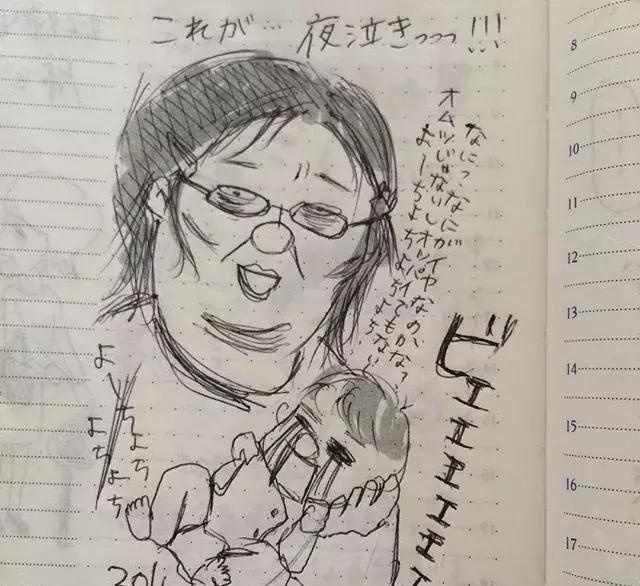 これが… 夜泣きっっっ!!!
なに?なにがイヤなのかな?
オムツじゃないしオッパイでもない
よーちよちよちよち
ビエエエエエエ
よーちよち
よちよち
8
9
10
11
12
13
14
15
16
17